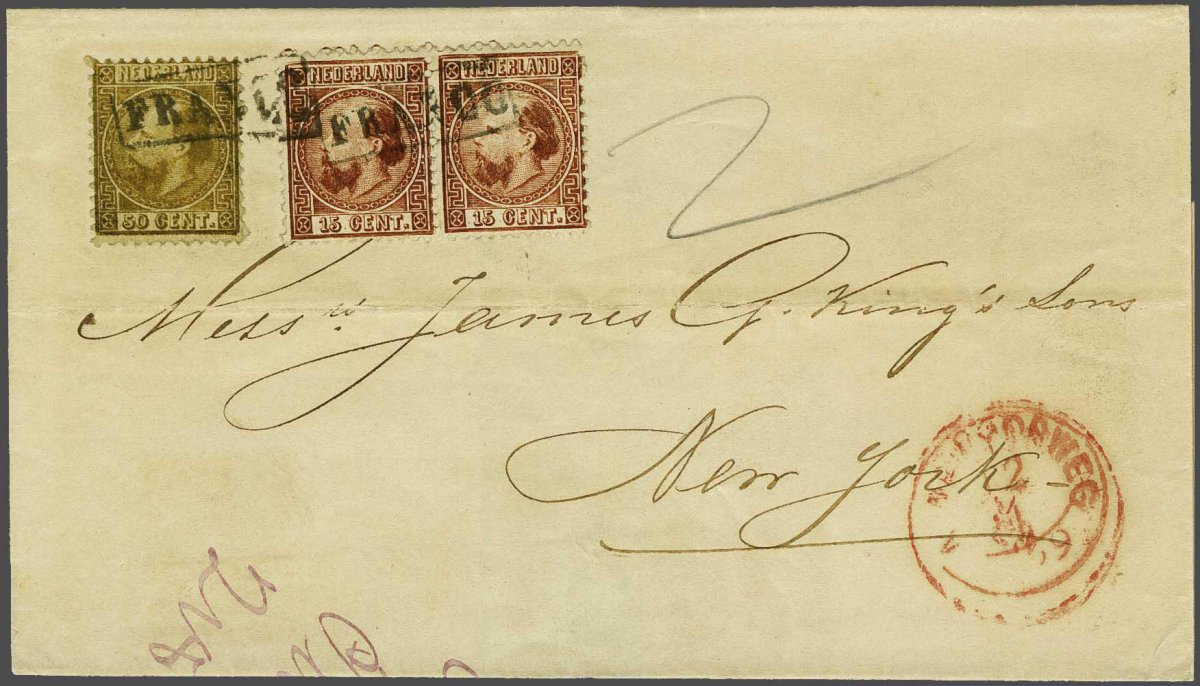 NEDERLAND NEDERLAND NEDERLAND
FRANCO FRANCO
50 CENT. 15 CENT. 15 CENT.
2
Messrs James G. King's Sons
New York
12